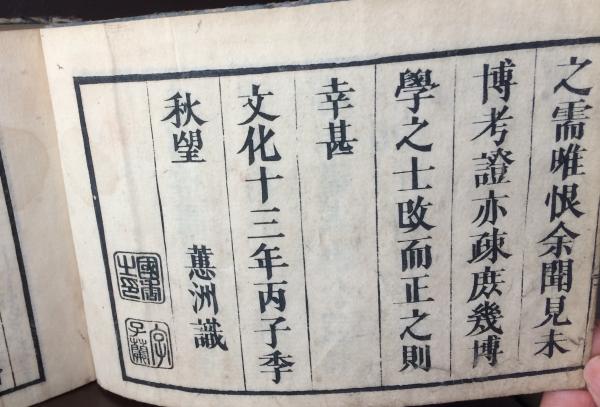 之需唯恨余聞見未
博考證亦疎庶幾博
學之士改而正之則
幸甚
文化十三年丙子季
秋望　蕙洲識
字子蘭